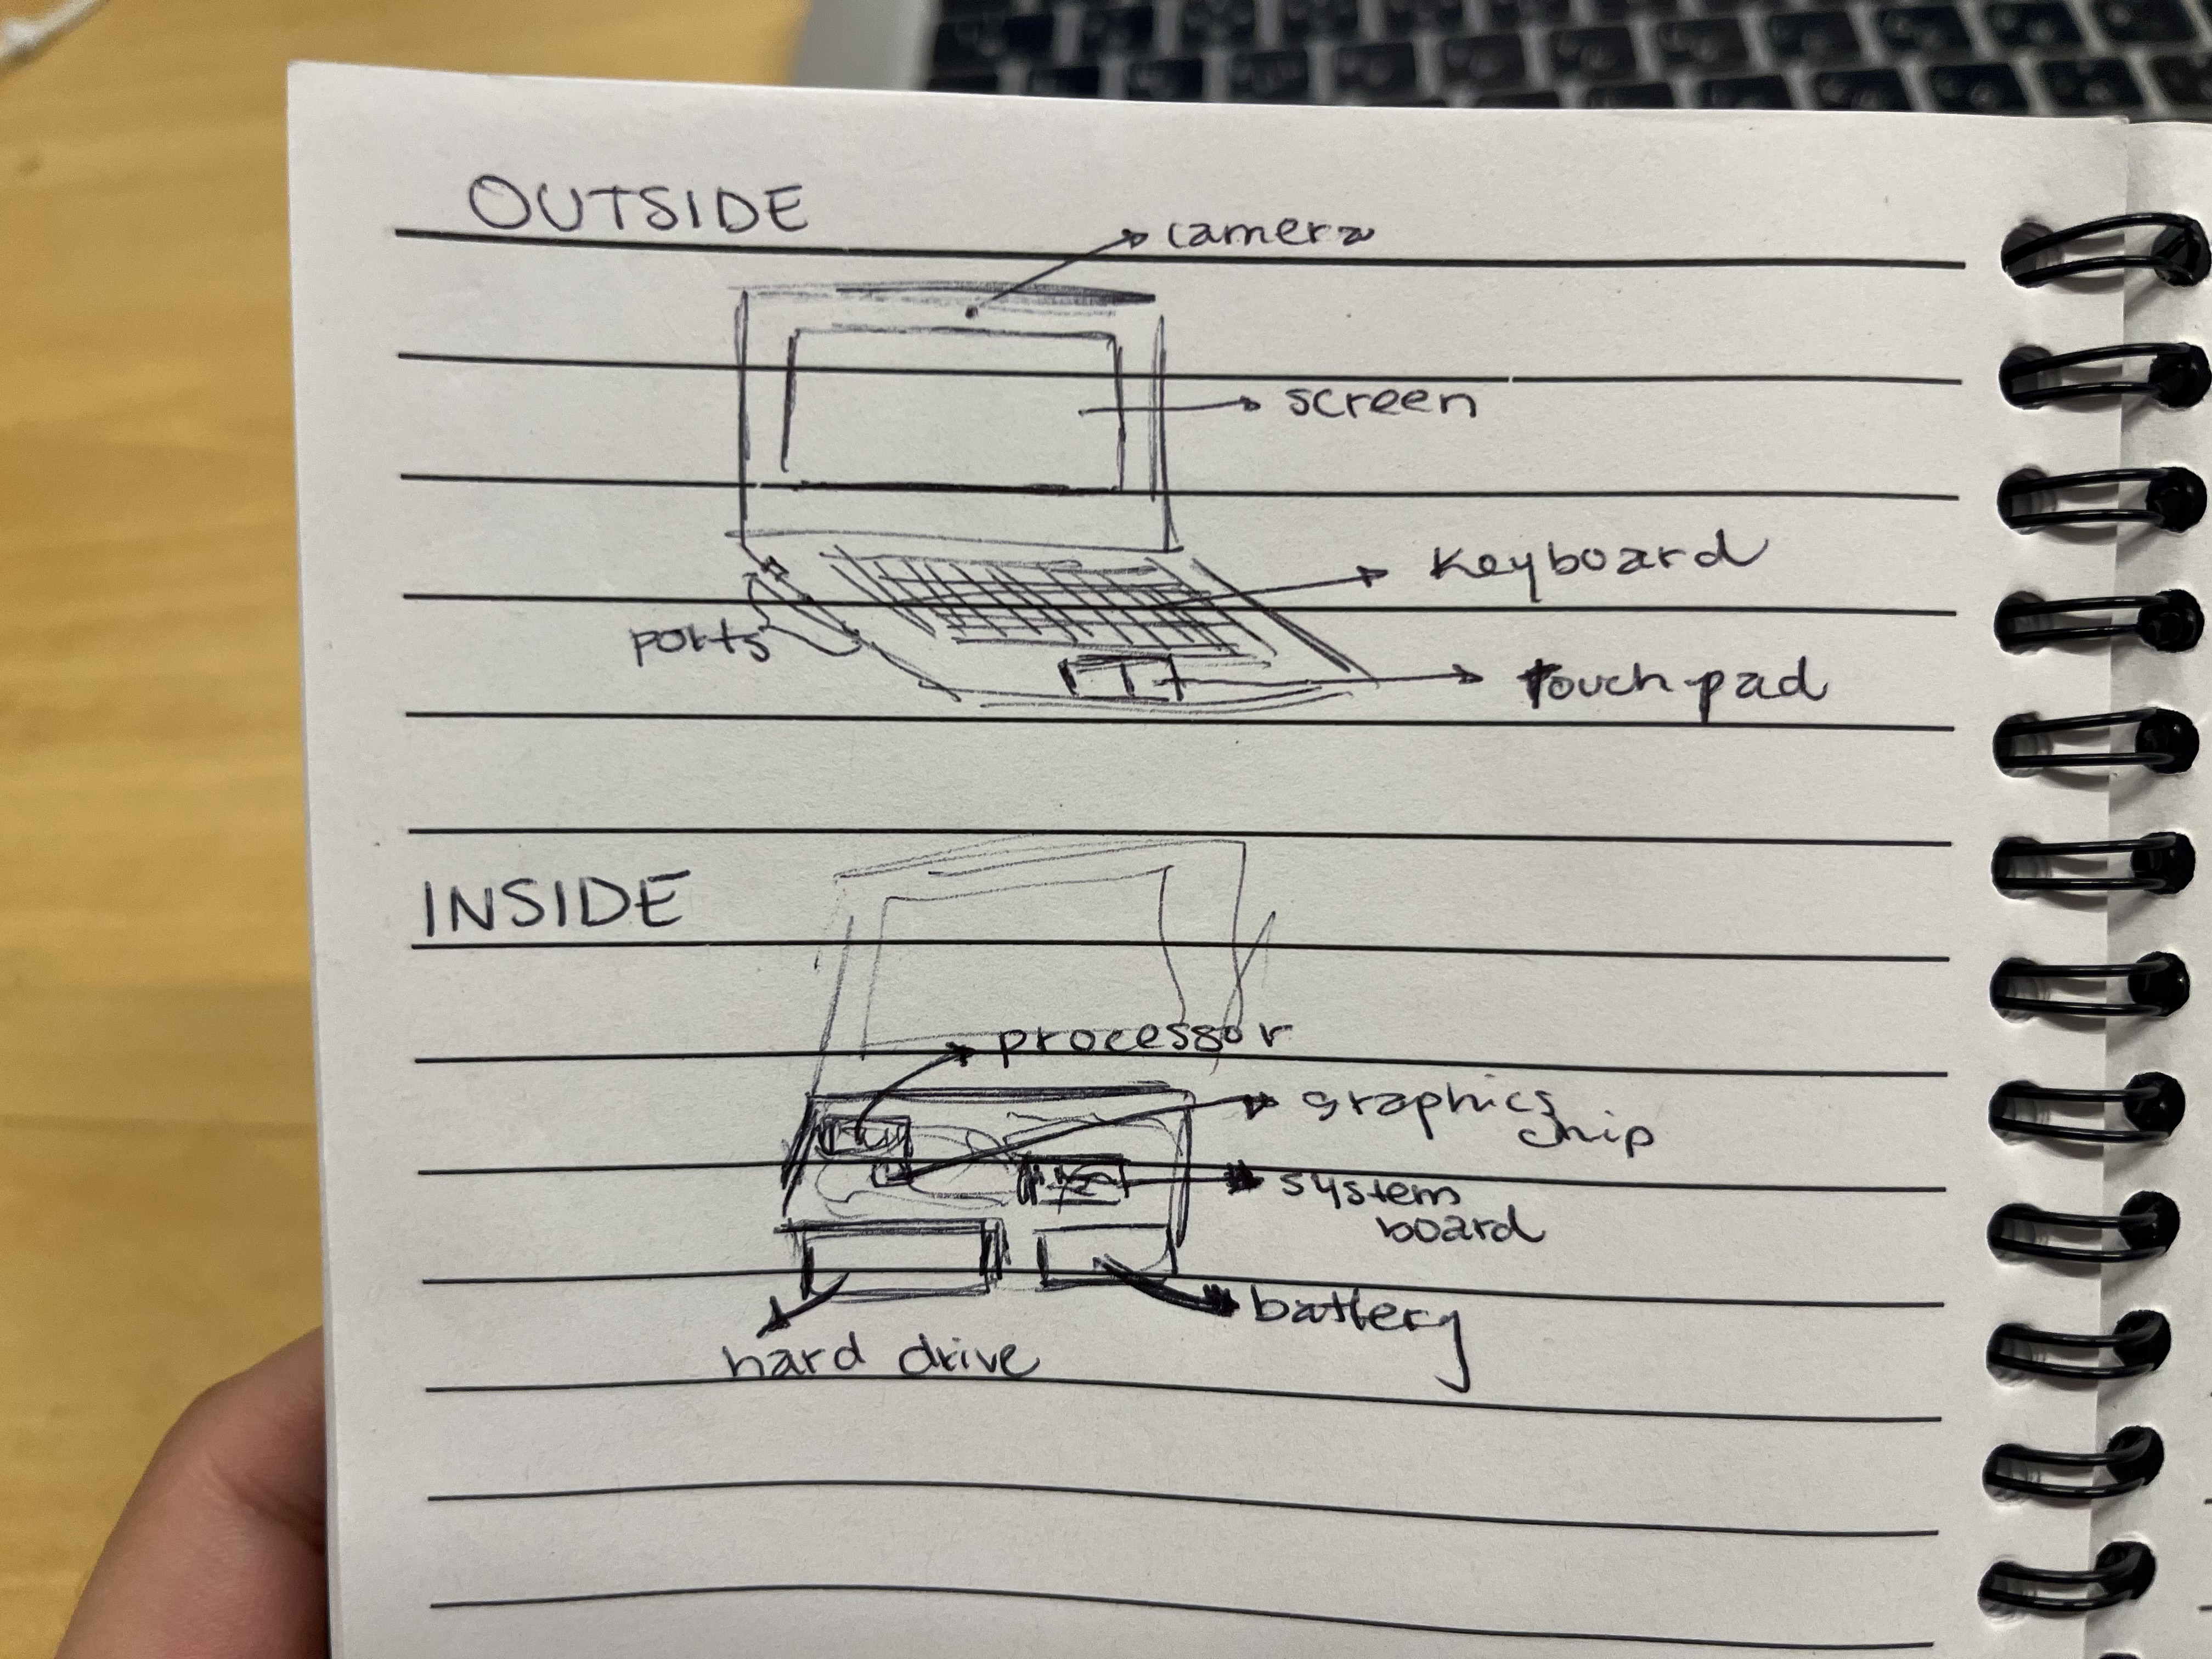 OUTSIDE
camera
screen
keyboard
ports
touchpad
INSIDE
processor
graphics
chip
system
board
battery
hard drive